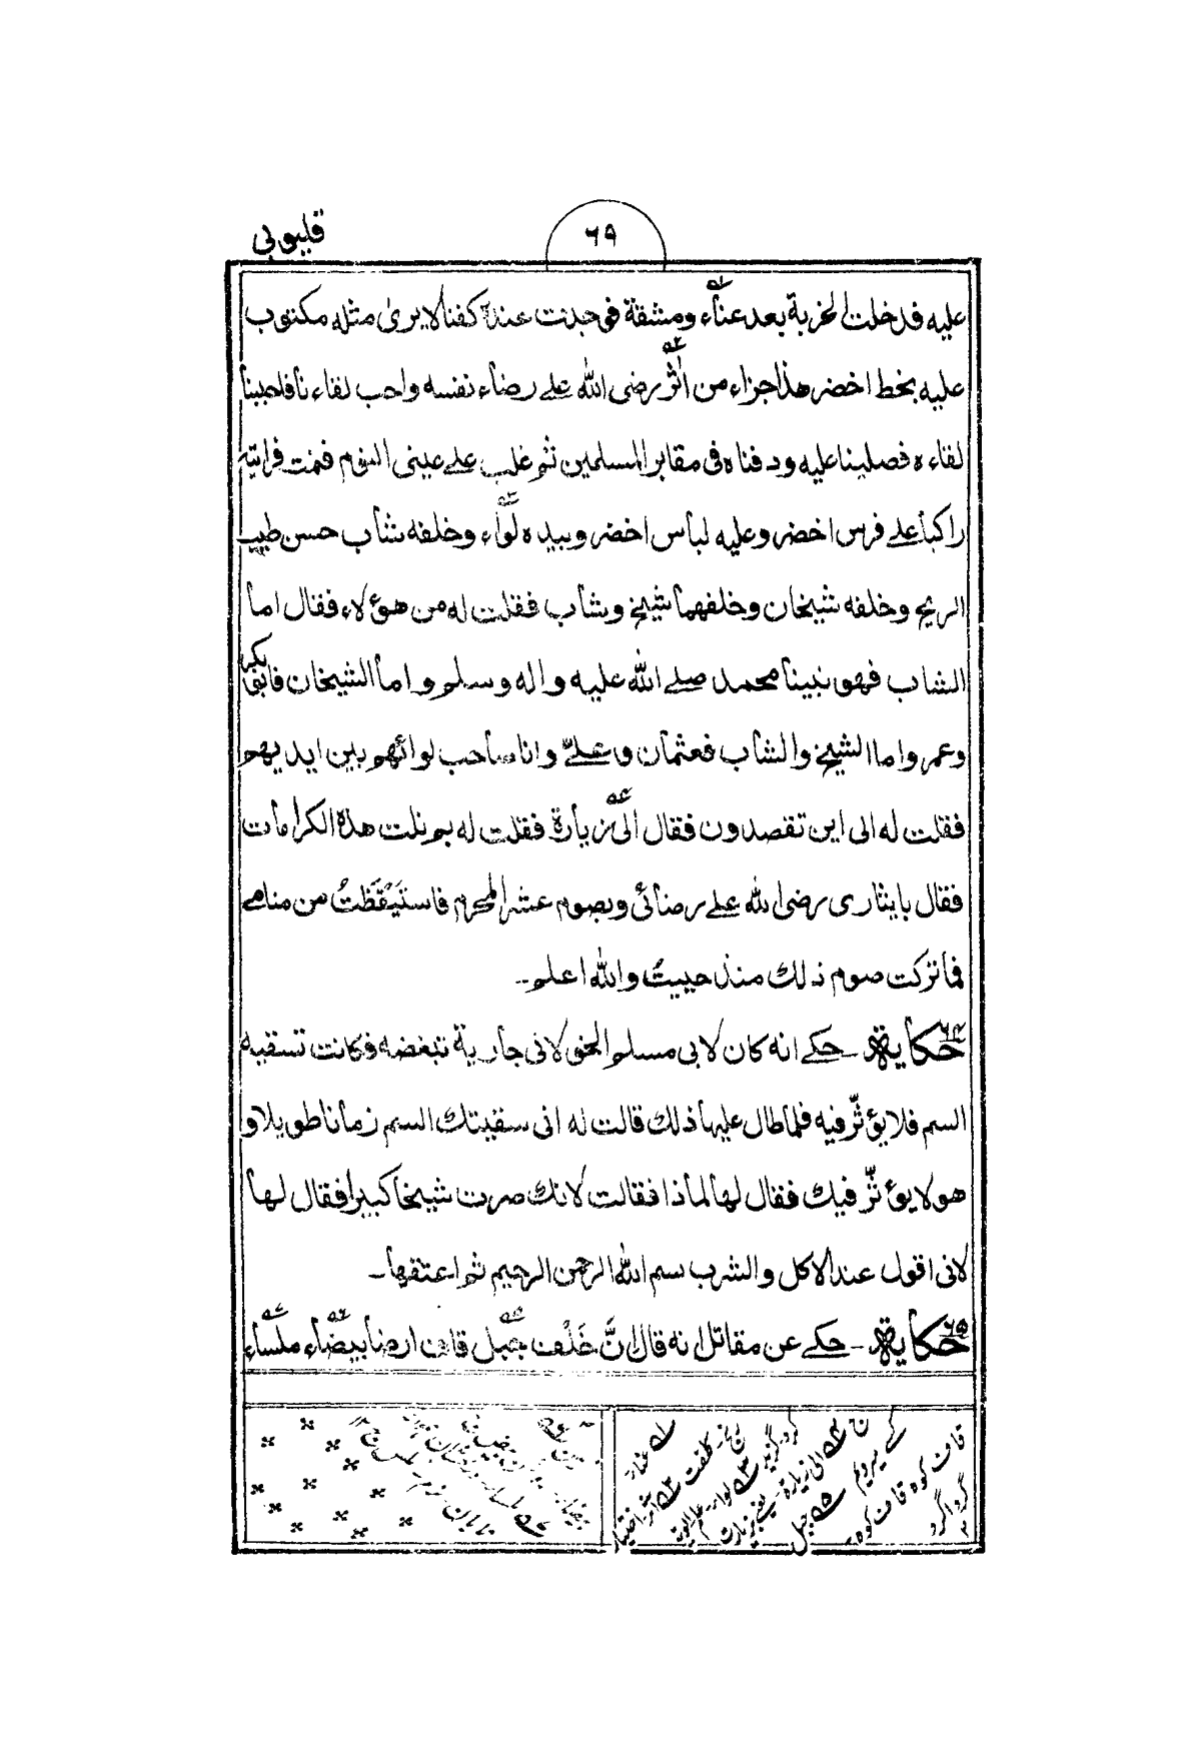 قليوبي
٦٩
عليه فدخلت الخربة بعد عناء ومشقة فوجدت عنده كفنا لا يرى مثله مكتوب
عليه بخط اخضر هذا جزاء من اثر رضى الله على رضاء نفسه واحب لقاءنا فاحببنا
لقاءه فصلينا عليه ودفناه فى مقابر المسلمين ثم غلب على عينى النوم فنمت فرايته
راكبا على فرس اخضر وعليه لباس اخضر وبيده لواء وخلفه شاب حسن طيب
الريح وخلفه شيخان وخلفهما شيخ وشاب فقلت له من هؤلاء فقال اما
الشاب فهو نبينا محمد صلى الله عليه واله وسلم واما الشيخان فابو بكر
وعمر واما الشيخ والشاب فعثمان وعلىّ وانا صاحب لوائهم بين ايديهم
فقلت له الى اين تقصدون فقال الى زيارة فقلت له بم نلت هذه الكرامات
فقال بايثارى رضى الله على رضائى وبصوم عشر المحرم فاستَيْقَظَتُ من منامى
فما تركت صوم ذلك منذ حييتُ والله اعلم۔
حكاية ٦٤ ۔ حكى انه كان لابى مسلم الخولانى جارية تبغضه فكانت تسقيه
السم فلا يؤثّر فيه فلما طال عليها ذلك قالت له انى سقيتك السم زمانا طويلا و
هو لا يؤثّر فيك فقال لها لماذا فقالت لانك صرت شيخا كبيرا فقال لها
لانى اقول عند الاكل والشرب بسم الله الرحمن الرحيم ثم اعتقها۔
حكاية ٦٥ ۔ حكى عن مقاتل انه قال انَّ خَلْف جبل قاف ارضا بيضاء ملساء